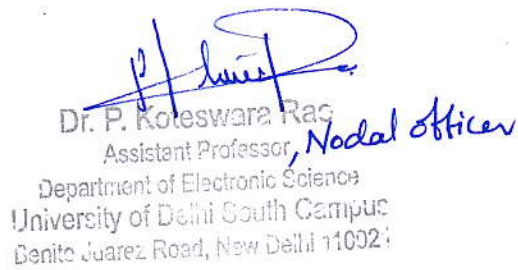 Dr. P. Koteswara Rao
Assistant Professor, Nodal officer
Department of Electronic Science
University of Delhi South Campus
Benito Juarez Road, New Delhi 11002